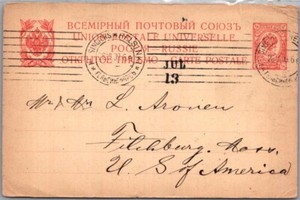 ВСЕМІРНЫЙ ПОЧТОВЫЙ СОЮЗЪ
UNION POSTALE UNIVERSELLE
RUSSIE
ОТКРЫТОЕ ПИСЬМО CARTE POSTALE
JUL
13
Mr & Mrs L. Aronen
Fitchburg, Mass.
U S of America